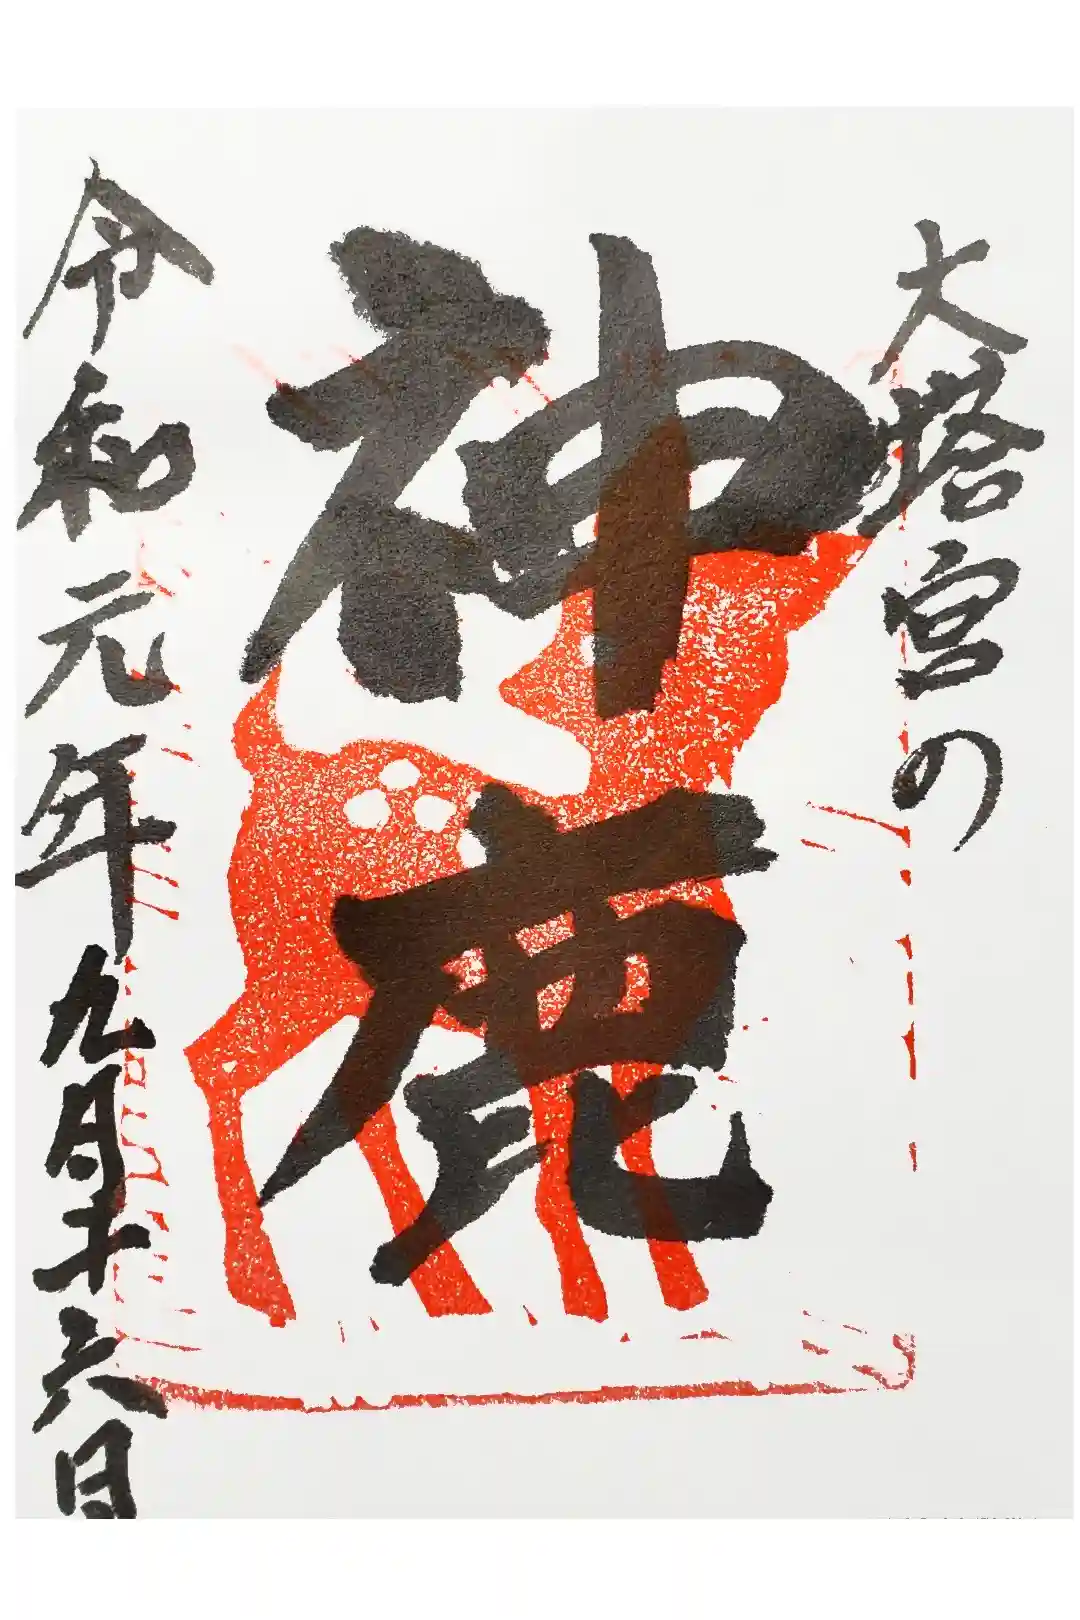 大塔宮の
神鹿
令和元年九月十六日